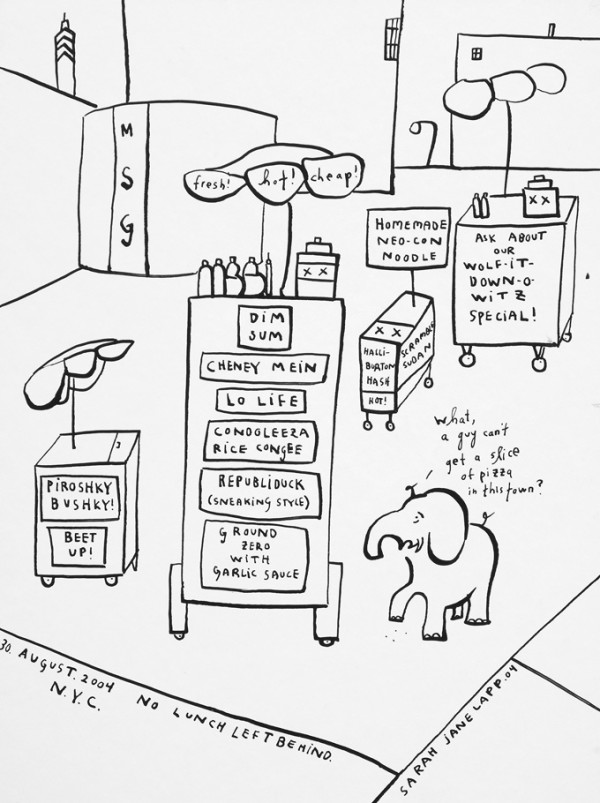 M
S
G
fresh!
hot!
cheap!
DIM
SUM
CHENEY MEIN
LO LIFE
CONDOLEEZA
RICE CONGEE
REPUBLIDUCK
(SNEAKING STYLE)
GROUND
ZERO
WITH
GARLIC SAUCE
HOMEMADE
NEO-CON
NOODLE
X X
X X
X X
HALLI-
BURTON
HASH
HOT!
SCRAMBLED
SUDAN
ASK ABOUT
OUR
WOLF-IT-
DOWN-O-
WITZ
SPECIAL!
PIROSHKY
BUSHKY!
BEET
UP!
What,
a guy can't
get a slice
of pizza
in this town?
30. AUGUST. 2004 NO LUNCH LEFT BEHIND.
N.Y.C.
SARAH JANE LAPP. 04